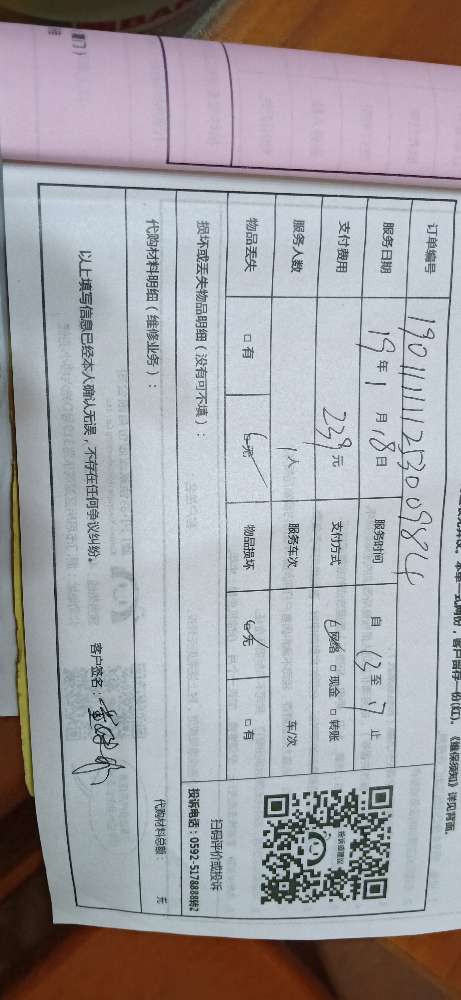 本单一式两份，客户留存一份(红)，《维保须知》详见背面。
订单编号 190111111253009824
服务日期 19年 1月 18日 服务时间 自 13 至 17 止
支付费用 239元 支付方式 ☑网络 □现金 □转账
服务人数 1人 服务车次 车/次
物品丢失 □有 ☑无 物品损坏 ☑无 □有
损坏或丢失物品明细（没有可不填）：
投诉或建议
扫码评价或投诉
投诉电话：0592-5178888转2
代购材料明细（维修业务）：
代购材料总额： 元
以上填写信息已经本人确认无误，不存在任何争议纠纷。
客户签名：